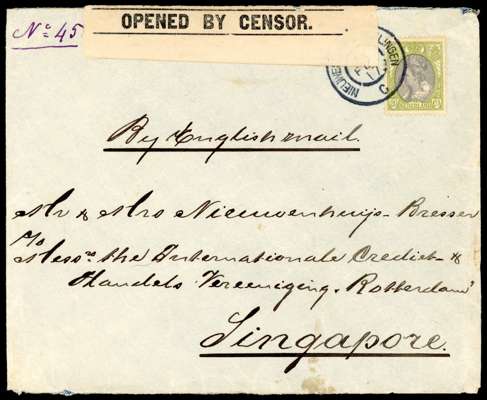 OPENED BY CENSOR.
No. 45
By English mail.
Mr & Mrs Nieuwenhuijs-Bresser
c/o
Messrs the Internationale Crediet- &
Handels Vereeniging "Rotterdam"
Singapore.